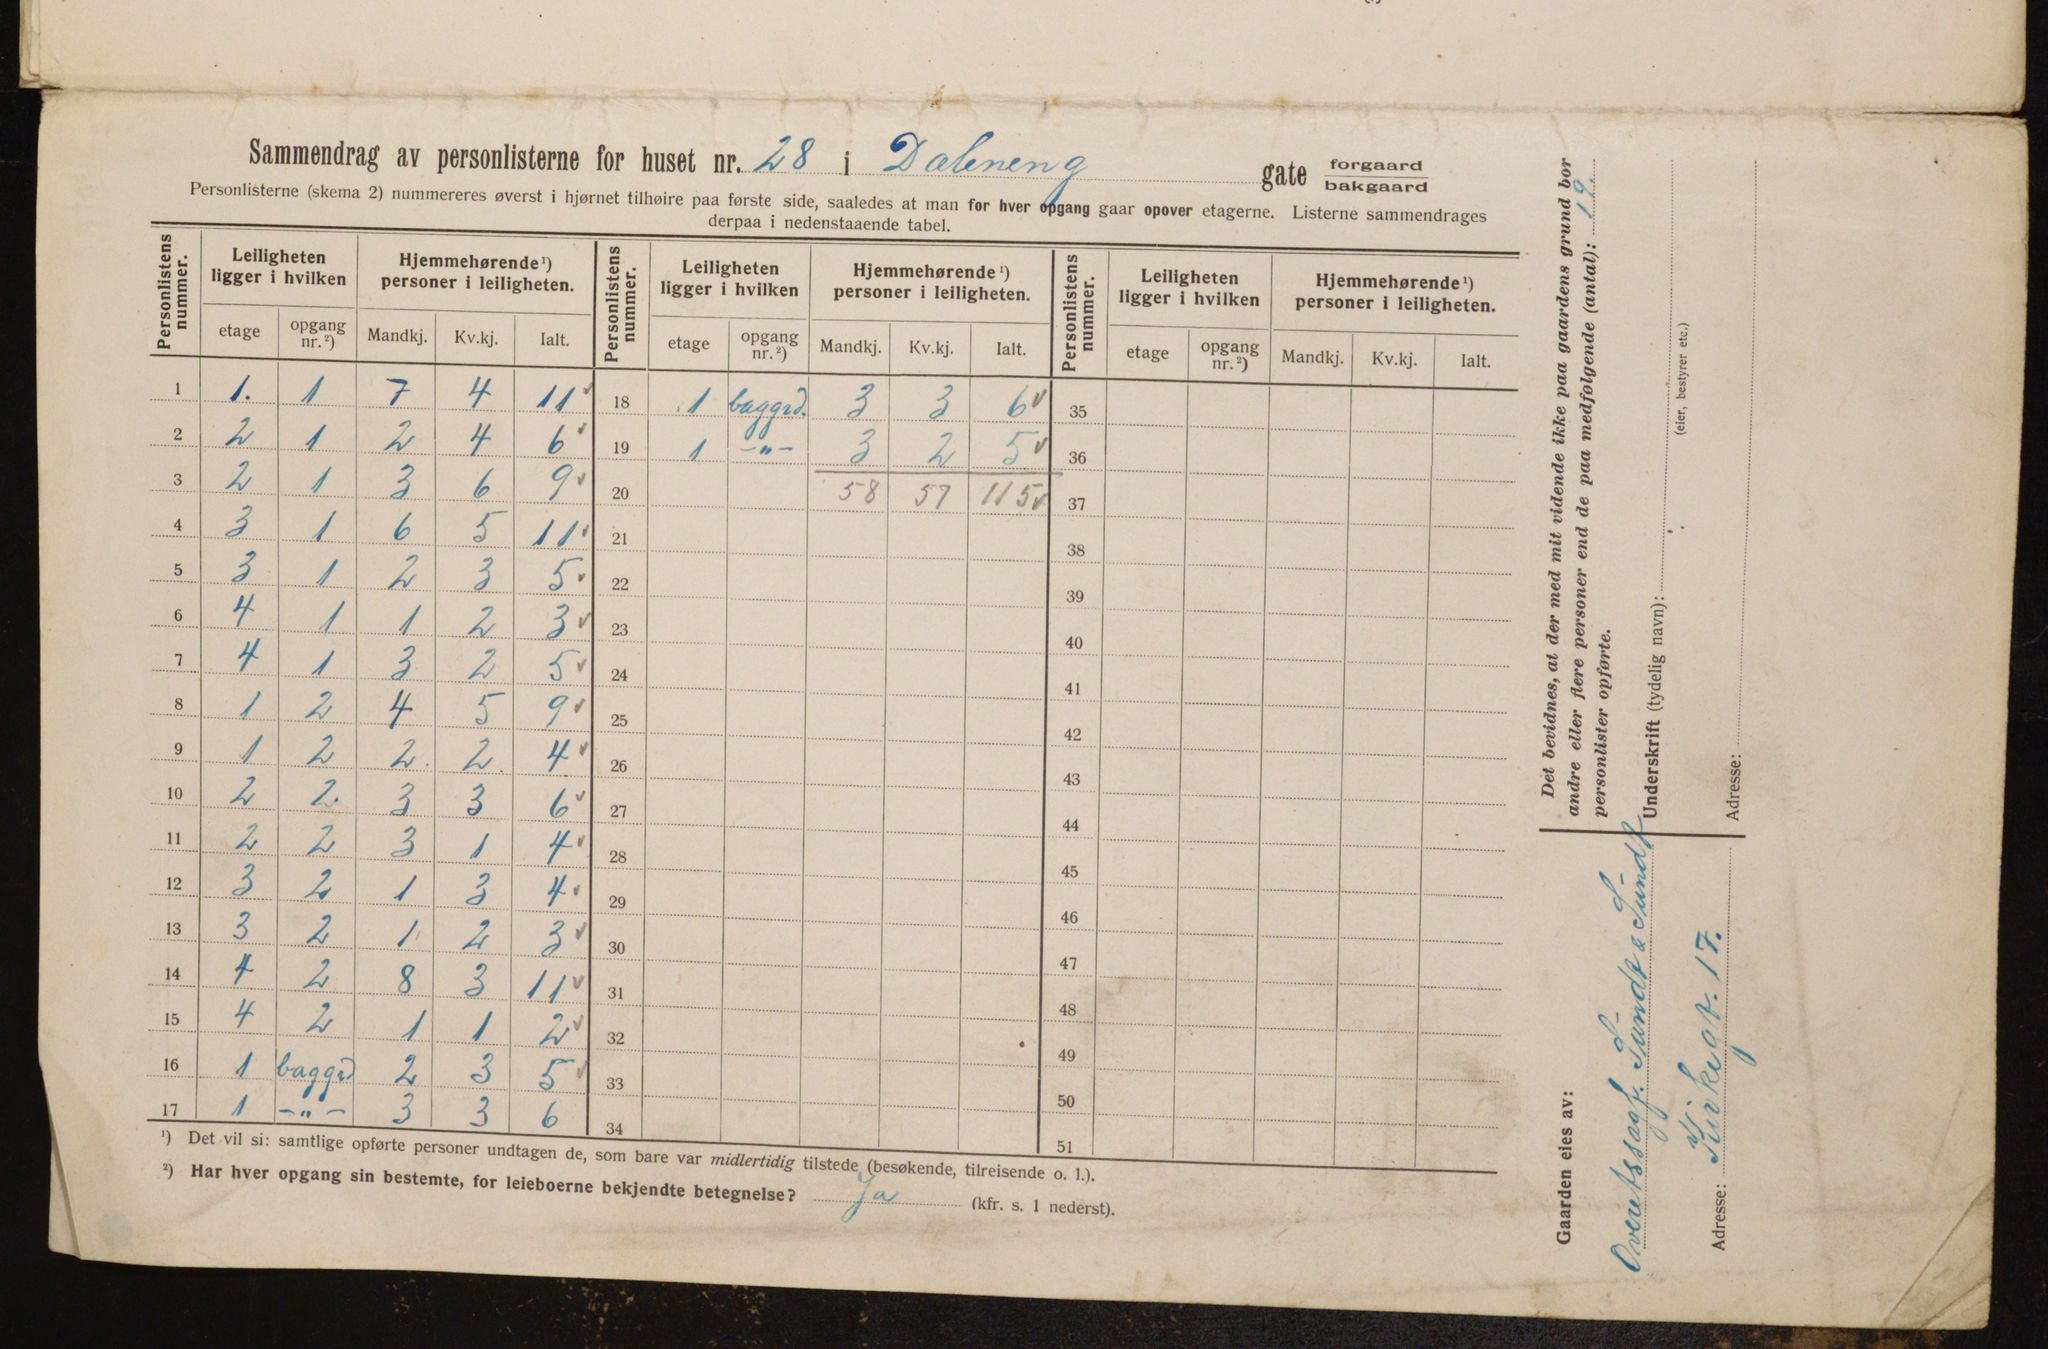 Sammendrag av personlisterne for huset nr. 28 i Dæleneng gate forgaard
bakgaard
Personlisterne (skema 2) nummereres øverst i hjørnet tilhøire paa første side, saaledes at man for hver opgang gaar opover etagerne. Listerne sammendrages
derpaa i nedenstaaende tabel.
Personlistens nummer. Leiligheten ligger i hvilken Hjemmehørende ¹) personer i leiligheten. Personlistens nummer. Leiligheten ligger i hvilken Hjemmehørende ¹) personer i leiligheten. Personlistens nummer. Leiligheten ligger i hvilken Hjemmehørende ¹) personer i leiligheten.
etage opgang nr. ²) Mandkj. Kv.kj. Ialt. etage opgang nr. ²) Mandkj. Kv.kj. Ialt. etage opgang nr. ²) Mandkj. Kv.kj. Ialt.
1 1. 1 7 4 11 18 1 baggrd. 3 3 6 35
2 2 1 2 4 6 19 1 -"- 3 2 5 36
3 2 1 3 6 9 20 58 57 115 37
4 3 1 6 5 11 21 38
5 3 1 2 3 5 22 39
6 4 1 1 2 3 23 40
7 4 1 3 2 5 24 41
8 1 2 4 5 9 25 42
9 1 2 2 2 4 26 43
10 2 2 3 3 6 27 44
11 2 2 3 1 4 28 45
12 3 2 1 3 4 29 46
13 3 2 1 2 3 30 47
14 4 2 8 3 11 31 48
15 4 2 1 1 2 32 49
16 1 baggrd 2 3 5 33 50
17 1 -"- 3 3 6 34 51
¹) Det vil si: samtlige opførte personer undtagen de, som bare var midlertidig tilstede (besøkende, tilreisende o. l.).
²) Har hver opgang sin bestemte, for leieboerne bekjendte betegnelse? Ja (kfr. s. 1 nederst).
Det bevidnes, at der med mit vidende ikke paa gaardens grund bor
andre eller flere personer end de paa medfølgende (antal): 19.
personlister opførte.
Underskrift (tydelig navn):
(eier, bestyrer etc.)
Adresse:
Gaarden eies av:
Overetssagf. Sundt & Sundt
Adresse: Kirkegt. 17.